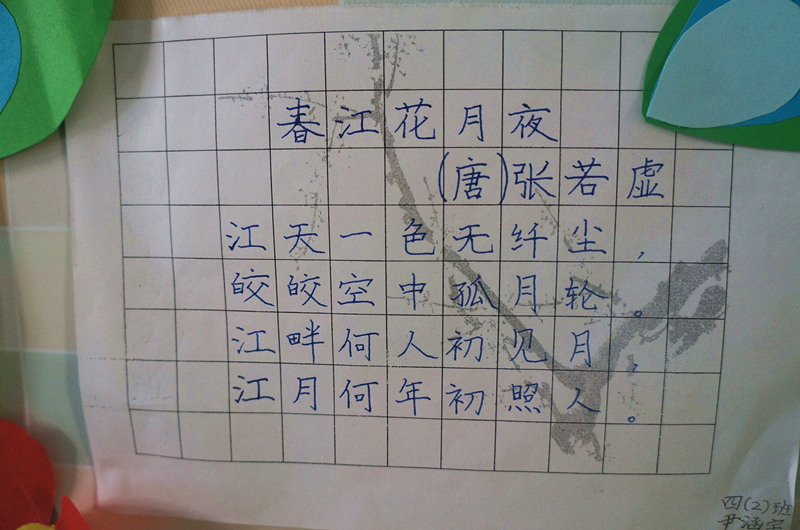 春江花月夜
(唐)张若虚
江天一色无纤尘,
皎皎空中孤月轮。
江畔何人初见月,
江月何年初照人。
四(2)班
尹涵